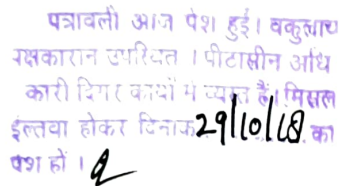 पत्रावली आज पेश हुई। वकुलाय
रक्षकारान उपस्थित । पीटासीन अधि
कारी दिगर कार्यो में व्यस्त हैं। मिसल
इल्तवा होकर दिनांक 29/10/18 को
पेश हों ।